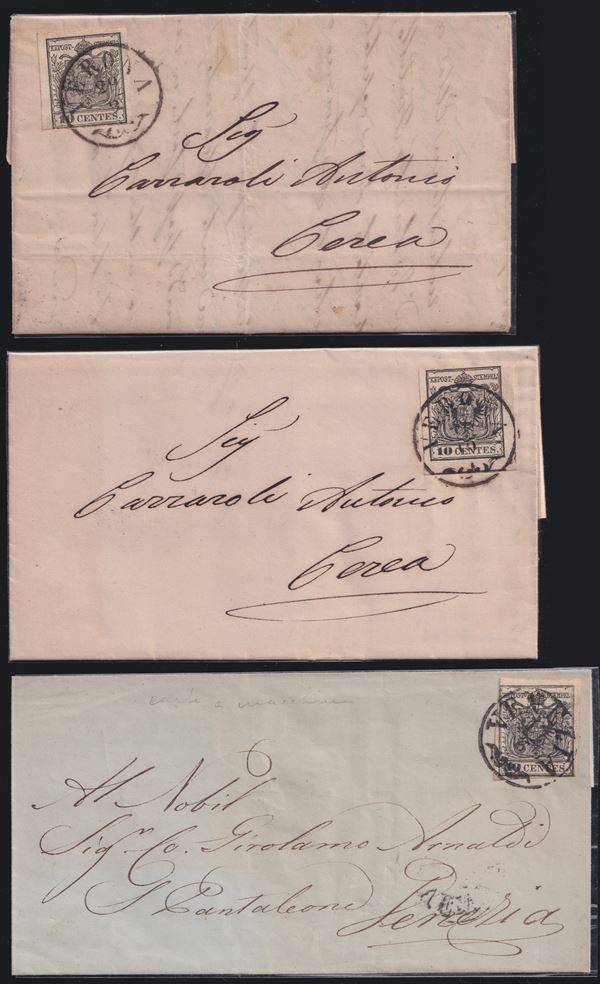 KKPOST-STEMPEL
10 CENTES.
VERONA
Sig
Carraroli Antonio
Cerea
KKPOST-STEMPEL
10 CENTES.
Sig
Carraroli Antonio
Cerea
CENTES.
carta a macchina
Al Nobil
Sigr. Co. Girolamo Arnaldi
S Pantaleone Venezia